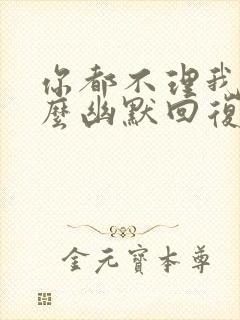 你都不理我
麼幽默回復
金元寶本尊